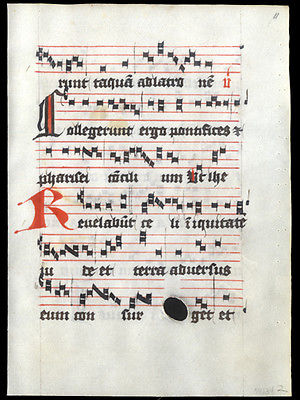 runt tãquã ad latro nẽ ii
Collegerunt ergo pontifices et
pharisei cõcili um Ut ihe
Revelabũt ce li iniquitatẽ
iu de et terra adversus
eum con sur get et